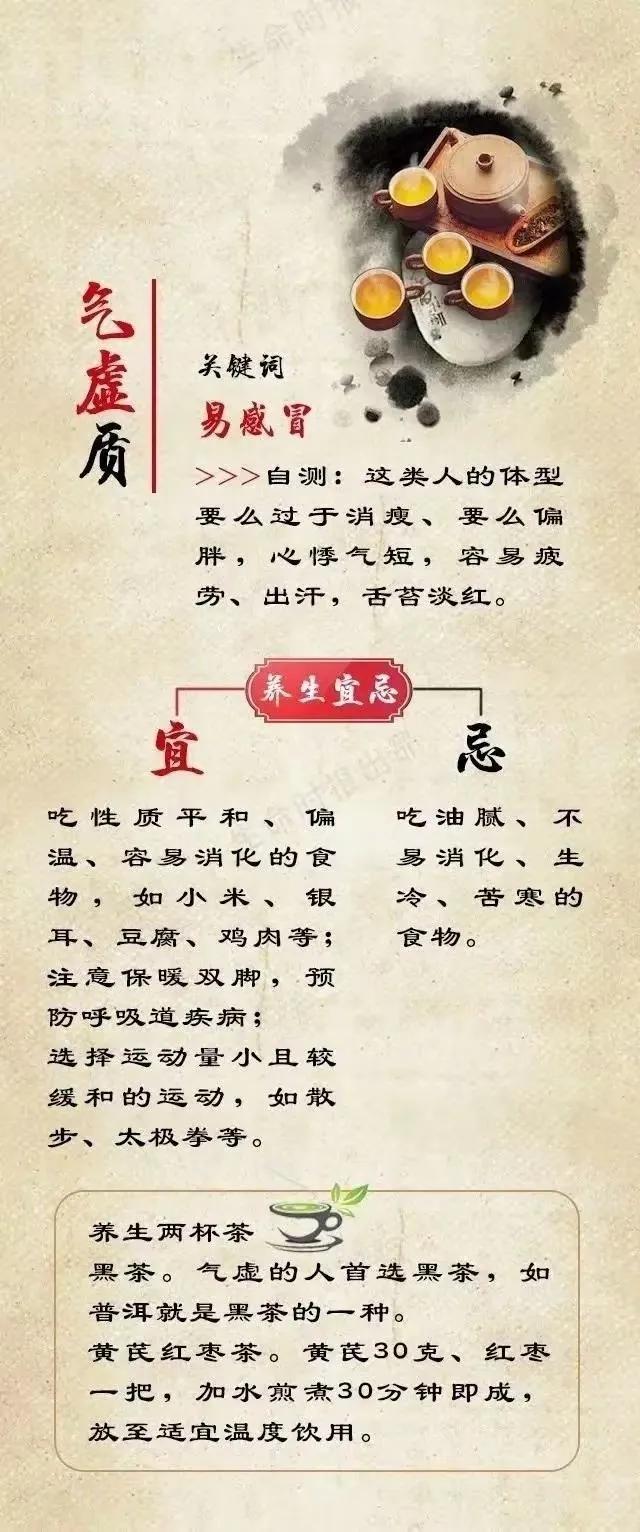 生命时报
气虚质
关键词
易感冒
>>>自测：这类人的体型
要么过于消瘦、要么偏
胖，心悸气短，容易疲
劳、出汗，舌苔淡红。
养生宜忌
宜
吃性质平和、偏
温、容易消化的食
物，如小米、银
耳、豆腐、鸡肉等；
注意保暖双脚，预
防呼吸道疾病；
选择运动量小且较
缓和的运动，如散
步、太极拳等。
忌
吃油腻、不
易消化、生
冷、苦寒的
食物。
养生两杯茶
黑茶。气虚的人首选黑茶，如
普洱就是黑茶的一种。
黄芪红枣茶。黄芪30克、红枣
一把，加水煎煮30分钟即成，
放至适宜温度饮用。